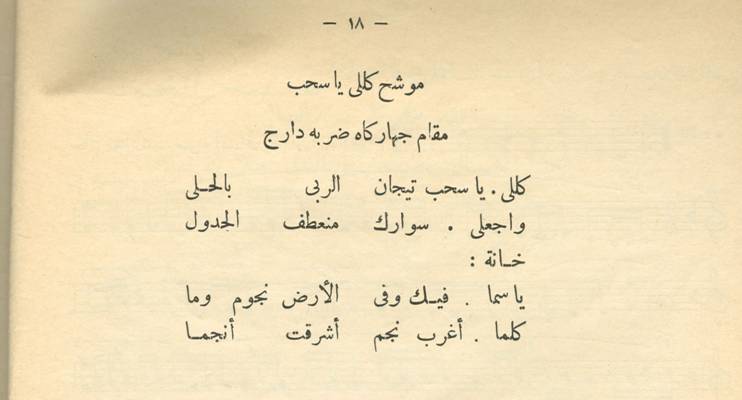 — ١٨ —
موشح كللى ياسحب
مقام جهاركاه ضربه دارج
كللى . يا سحب تيجان الربى بالحلى
واجعلى . سوارك منعطف الجدول
خانة :
ياسما . فيك وفى الأرض نجوم وما
كلما . أغرب نجم أشرقت أنجما